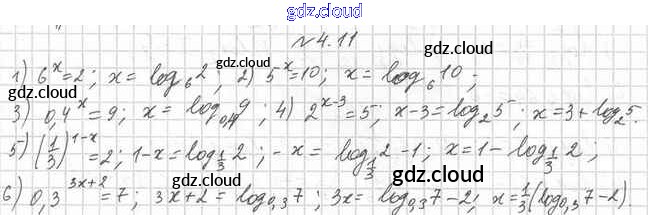 gdz.cloud
№4.11
gdz.cloud
1) 6^x=2; x = log_6 2; 2) 5^-x=10; x = log_6 10;
gdz.cloud gdz.cloud
3) 0,4^x=9; x = log_0,4 9; 4) 2^x-3=5; x-3=log_2 5; x=3+log_2 5.
gdz.cloud
5) (1/3)^1-x=2; 1-x=log_1/3 2; -x = log_1/3 2-1; x=1-log_1/3 2;
gdz.cloud gdz.cloud
6) 0,3^3x+2=7; 3x+2=log_0,3 7; 3x=log_0,3 7-2; x=1/3(log_0,3 7-2).
gdz.cloud